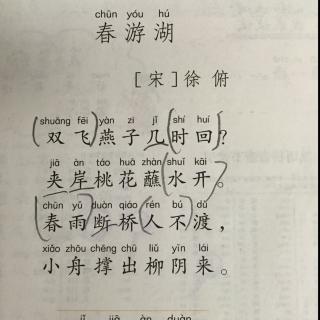 chūn yóu hú
春游湖
[宋]徐俯
shuāng fēi yàn zi jǐ shí huí
双飞燕子几时回?
jiā àn táo huā zhàn shuǐ kāi
夹岸桃花蘸水开。
chūn yǔ duàn qiáo rén bú dù
春雨断桥人不渡,
xiǎo zhōu chēng chū liǔ yīn lái
小舟撑出柳阴来。
jǐ jiā àn duàn